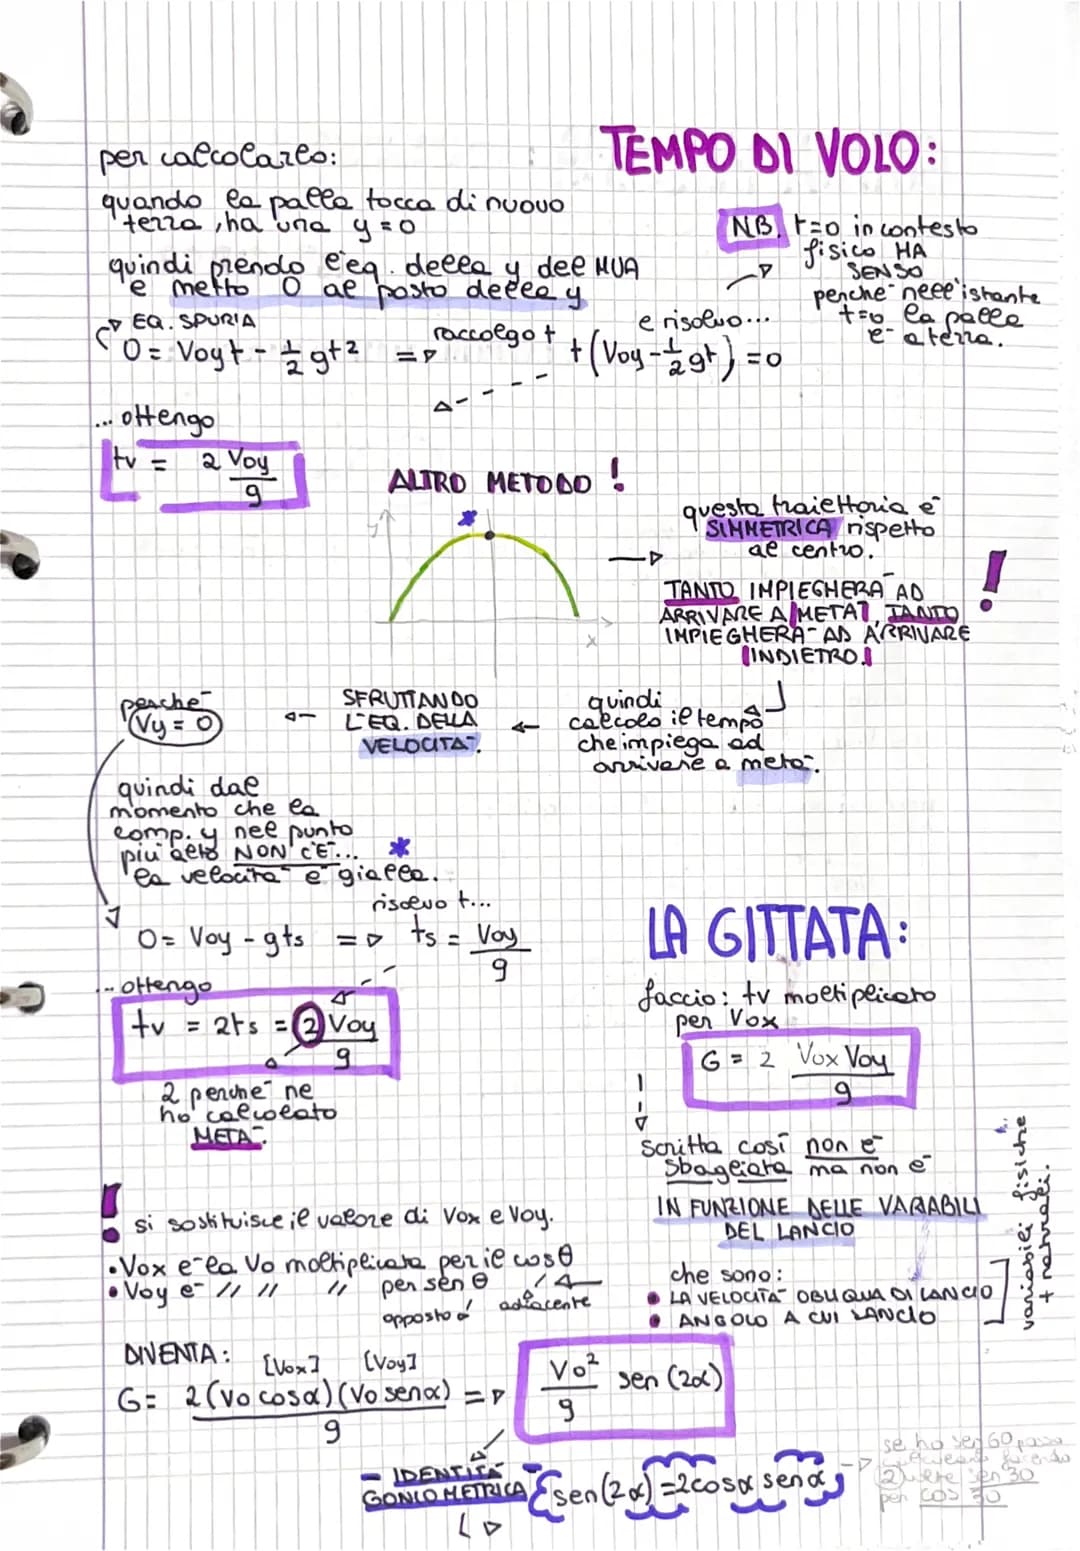 TEMPO DI VOLO:
per calcolarlo:
quando la palla tocca di nuovo
terra, ha una y=0
quindi prendo l'eq. della y del MUA
e metto 0 al posto della y
NB. t=0 in contesto
fisico HA
SENSO
perché nell'istante
t=0 la palla
è a terra.
EQ. SPURIA
0 = Voyt - 1/2 gt² => raccolgo t
e risolvo...
t(Voy - 1/2 gt) = 0
... ottengo
tv = 2 Voy/g
ALTRO METODO !
y
x
questa traiettoria è
SIMMETRICA rispetto
al centro.
TANTO IMPIEGHERÀ AD
ARRIVARE A METÀ, TANTO
IMPIEGHERÀ AD ARRIVARE
INDIETRO.
!
quindi
calcolo il tempo
che impiega ad
arrivare a metà.
SFRUTTANDO
L'EQ. DELLA
VELOCITÀ.
perché
Vy = 0
quindi dal
momento che la
comp. y nel punto
più alto NON C'È...
la velocità è gialla.
risolvo t...
0 = Voy - gts => ts = Voy/g
... ottengo
tv = 2ts = 2 Voy/g
2 perché ne
ho calcolato
METÀ.
LA GITTATA:
faccio: tv moltiplicato
per Vox
G = 2 Vox Voy/g
scritta così non è
sbagliata ma non è
IN FUNZIONE DELLE VARIABILI
DEL LANCIO
che sono:
• LA VELOCITÀ OBLIQUA DI LANCIO
• ANGOLO A CUI LANCIO
variabili fisiche
+ naturali.
! si sostituisce il valore di Vox e Voy.
• Vox è la Vo moltiplicata per il cosθ
• Voy è // // // per senθ
opposto
adiacente
DIVENTA:
[Vox] [Voy]
G = 2(Vo cosα)(Vo senα)/g => Vo²/g sen(2α)
IDENTITÀ
GONIOMETRICA
{sen(2α) = 2cosα senα}
se ho sen 60 posso
facendo
2 sen 30
per cos 30